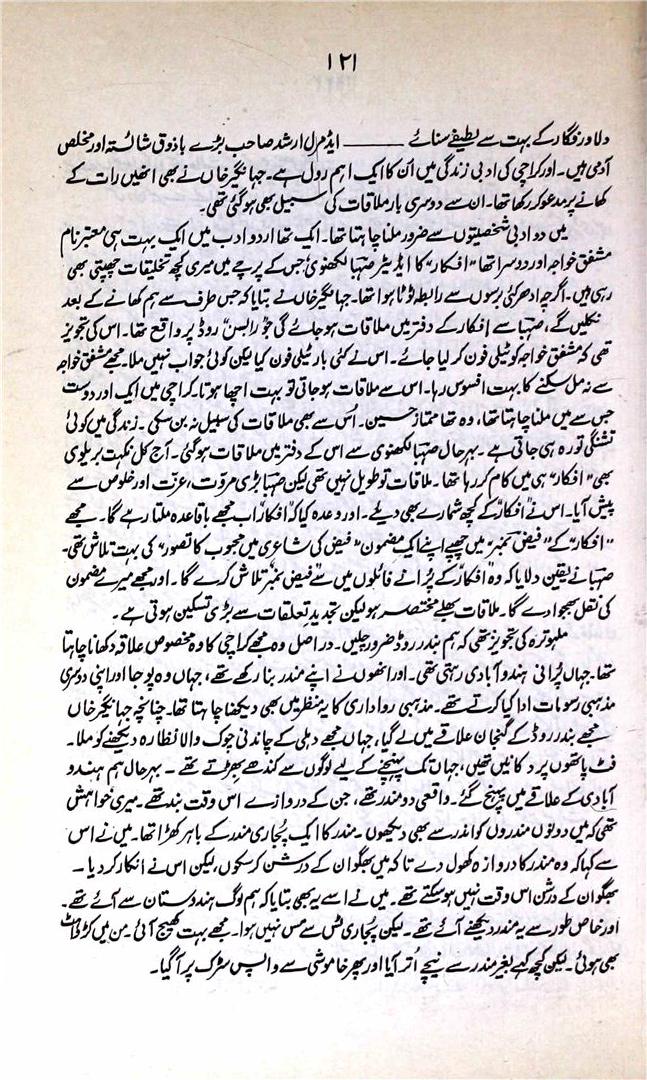 ۱۲۱
دلاور فگار کے بہت سے لطیفے سنائے ——— ایڈمرل ارشد صاحب بڑے باذوق شائستہ اور مخلص
آدمی ہیں۔ اور کراچی کی ادبی زندگی میں اُن کا ایک اہم رول ہے۔ جہانگیر خاں نے بھی انھیں رات کے
کھانے پر مدعو کر رکھا تھا۔ ان سے دوسری بار ملاقات کی سبیل بھی ہو گئی تھی۔
میں دو ادبی شخصیتوں سے ضرور ملنا چاہتا تھا۔ ایک تھا اردو ادب میں ایک بہت ہی معتبر نام
مشفق خواجہ اور دوسرا تھا "افکار" کا ایڈیٹر صہبا لکھنوی جس کے پرچے میں میری کچھ تخلیقات چھپتی بھی
رہی ہیں۔ اگرچہ ادھر کئی برسوں سے رابطہ ٹوٹا ہوا تھا۔ جہانگیر خاں نے بتایا کہ جس طرف سے ہم کھانے کے بعد
نکلیں گے، صہبا سے افکار کے دفتر میں ملاقات ہو جائے گی جو "رابسن" روڈ پر واقع تھا۔ اس کی تجویز
تھی کہ مشفق خواجہ کو ٹیلی فون کر لیا جائے۔ اس نے کئی بار ٹیلی فون کیا لیکن کوئی جواب نہیں ملا۔ مجھے مشفق خواجہ
سے نہ مل سکنے کا بہت افسوس رہا۔ اس سے ملاقات ہو جاتی تو بہت اچھا ہوتا۔ کراچی میں ایک اور دوست
جس سے میں ملنا چاہتا تھا، وہ تھا ممتاز حسین۔ اُس سے بھی ملاقات کی سبیل نہ بن سکی۔ زندگی میں کوئی
تشنگی تو رہ ہی جاتی ہے۔ بہرحال صہبا لکھنوی سے اس کے دفتر میں ملاقات ہو گئی۔ آج کل نکہت بریلوی
بھی "افکار" ہی میں کام کر رہا تھا۔ ملاقات تو طویل نہیں تھی لیکن صہبا بڑی مروت، عزت اور خلوص سے
پیش آیا۔ اس نے "افکار" کے کچھ شمارے بھی دیئے۔ اور وعدہ کیا کہ "افکار" اب مجھے باقاعدہ ملتا رہے گا۔ مجھے
"افکار" کے "فیض نمبر" میں چھپے اپنے ایک مضمون "فیض کی شاعری میں محبوب کا تصور" کی بہت تلاش تھی۔
صہبا نے یقین دلایا کہ وہ "افکار" کے پُرانے فائلوں میں سے "فیض نمبر" تلاش کرے گا۔ اور مجھے میرے مضمون
کی نقل بھجوا دے گا۔ ملاقات بھلے مختصر ہو لیکن تجدیدِ تعلقات سے بڑی تسکین ہوتی ہے۔
ملہوترہ کی تجویز تھی کہ ہم بندر روڈ ضرور چلیں۔ دراصل وہ مجھے کراچی کا وہ مخصوص علاقہ دکھانا چاہتا
تھا۔ جہاں پُرانی ہندو آبادی رہتی تھی۔ اور انھوں نے اپنے مندر بنا رکھے تھے، جہاں وہ پوجا اور اپنی دوسری
مذہبی رسومات ادا کیا کرتے تھے۔ مذہبی رواداری کا یہ منظر میں بھی دیکھنا چاہتا تھا۔ چنانچہ جہانگیر خاں
مجھے بندر روڈ کے گنجان علاقے میں لے گیا، جہاں مجھے دہلی کے چاندنی چوک والا نظارہ دیکھنے کو ملا۔
فٹ پاتھوں پر دکانیں تھیں، جہاں تک پہنچنے کے لیے لوگوں سے کندھے بھڑتے تھے۔ بہرحال ہم ہندو
آبادی کے علاقے میں پہنچ گئے۔ واقعی دو مندر تھے، جن کے دروازے اس وقت بند تھے۔ میری خواہش
تھی کہ میں دونوں مندروں کو اندر سے بھی دیکھوں۔ مندر کا ایک پُجاری مندر کے باہر کھڑا تھا۔ میں نے اس
سے کہا کہ وہ مندر کا دروازہ کھول دے تاکہ میں بھگوان کے درشن کر سکوں، لیکن اس نے انکار کر دیا۔
بھگوان کے درشن اس وقت نہیں ہو سکتے تھے۔ میں نے اسے یہ بھی بتایا کہ ہم لوگ ہندوستان سے آئے تھے۔
اور خاص طور سے یہ مندر دیکھنے آئے تھے۔ لیکن پُجاری ٹس سے مس نہیں ہوا۔ مجھے بہت کھیج آئی۔ من میں کڑواہٹ
بھی ہوئی۔ لیکن کچھ کہے بغیر مندر سے نیچے اُتر آیا اور پھر خاموشی سے واپس سڑک پر آ گیا۔